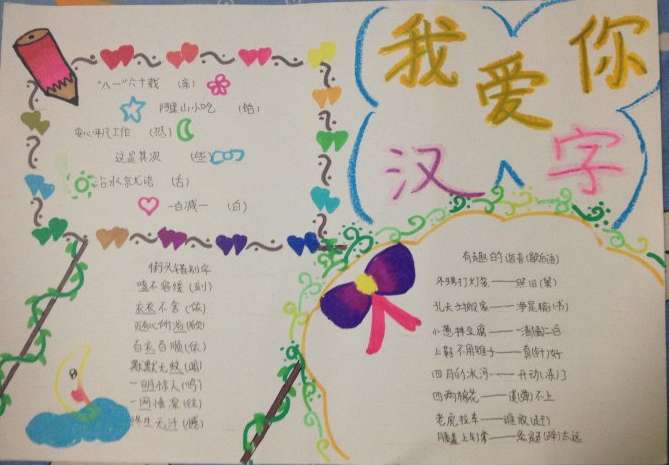 我爱你
汉字
"八一"六十载 (亲)
阿里山小吃 (恰)
安心平凡工作 (恐)
这是其次 (些)
冶水不尤语 (舌)
一百减一 (白)
街头错别字
嗑不容缓 (刻)
衣衣不舍 (依)
随心所浴 (欲)
百衣百顺 (依)
默默无蚊 (闻)
一明惊人 (鸣)
一网情深 (往)
终生无汗 (憾)
有趣的谐音(歇后语)
外甥打灯笼——照旧(舅)
孔夫子搬家——净是输(书)
小葱拌豆腐——一清(青)二白
上鞋不用锥子——真(针)好
四月的冰河——开动(冻)了
四两棉花——谈(弹)不上
老虎拉车——谁敢(赶)
膝盖上钉掌——离蹄(题)太远